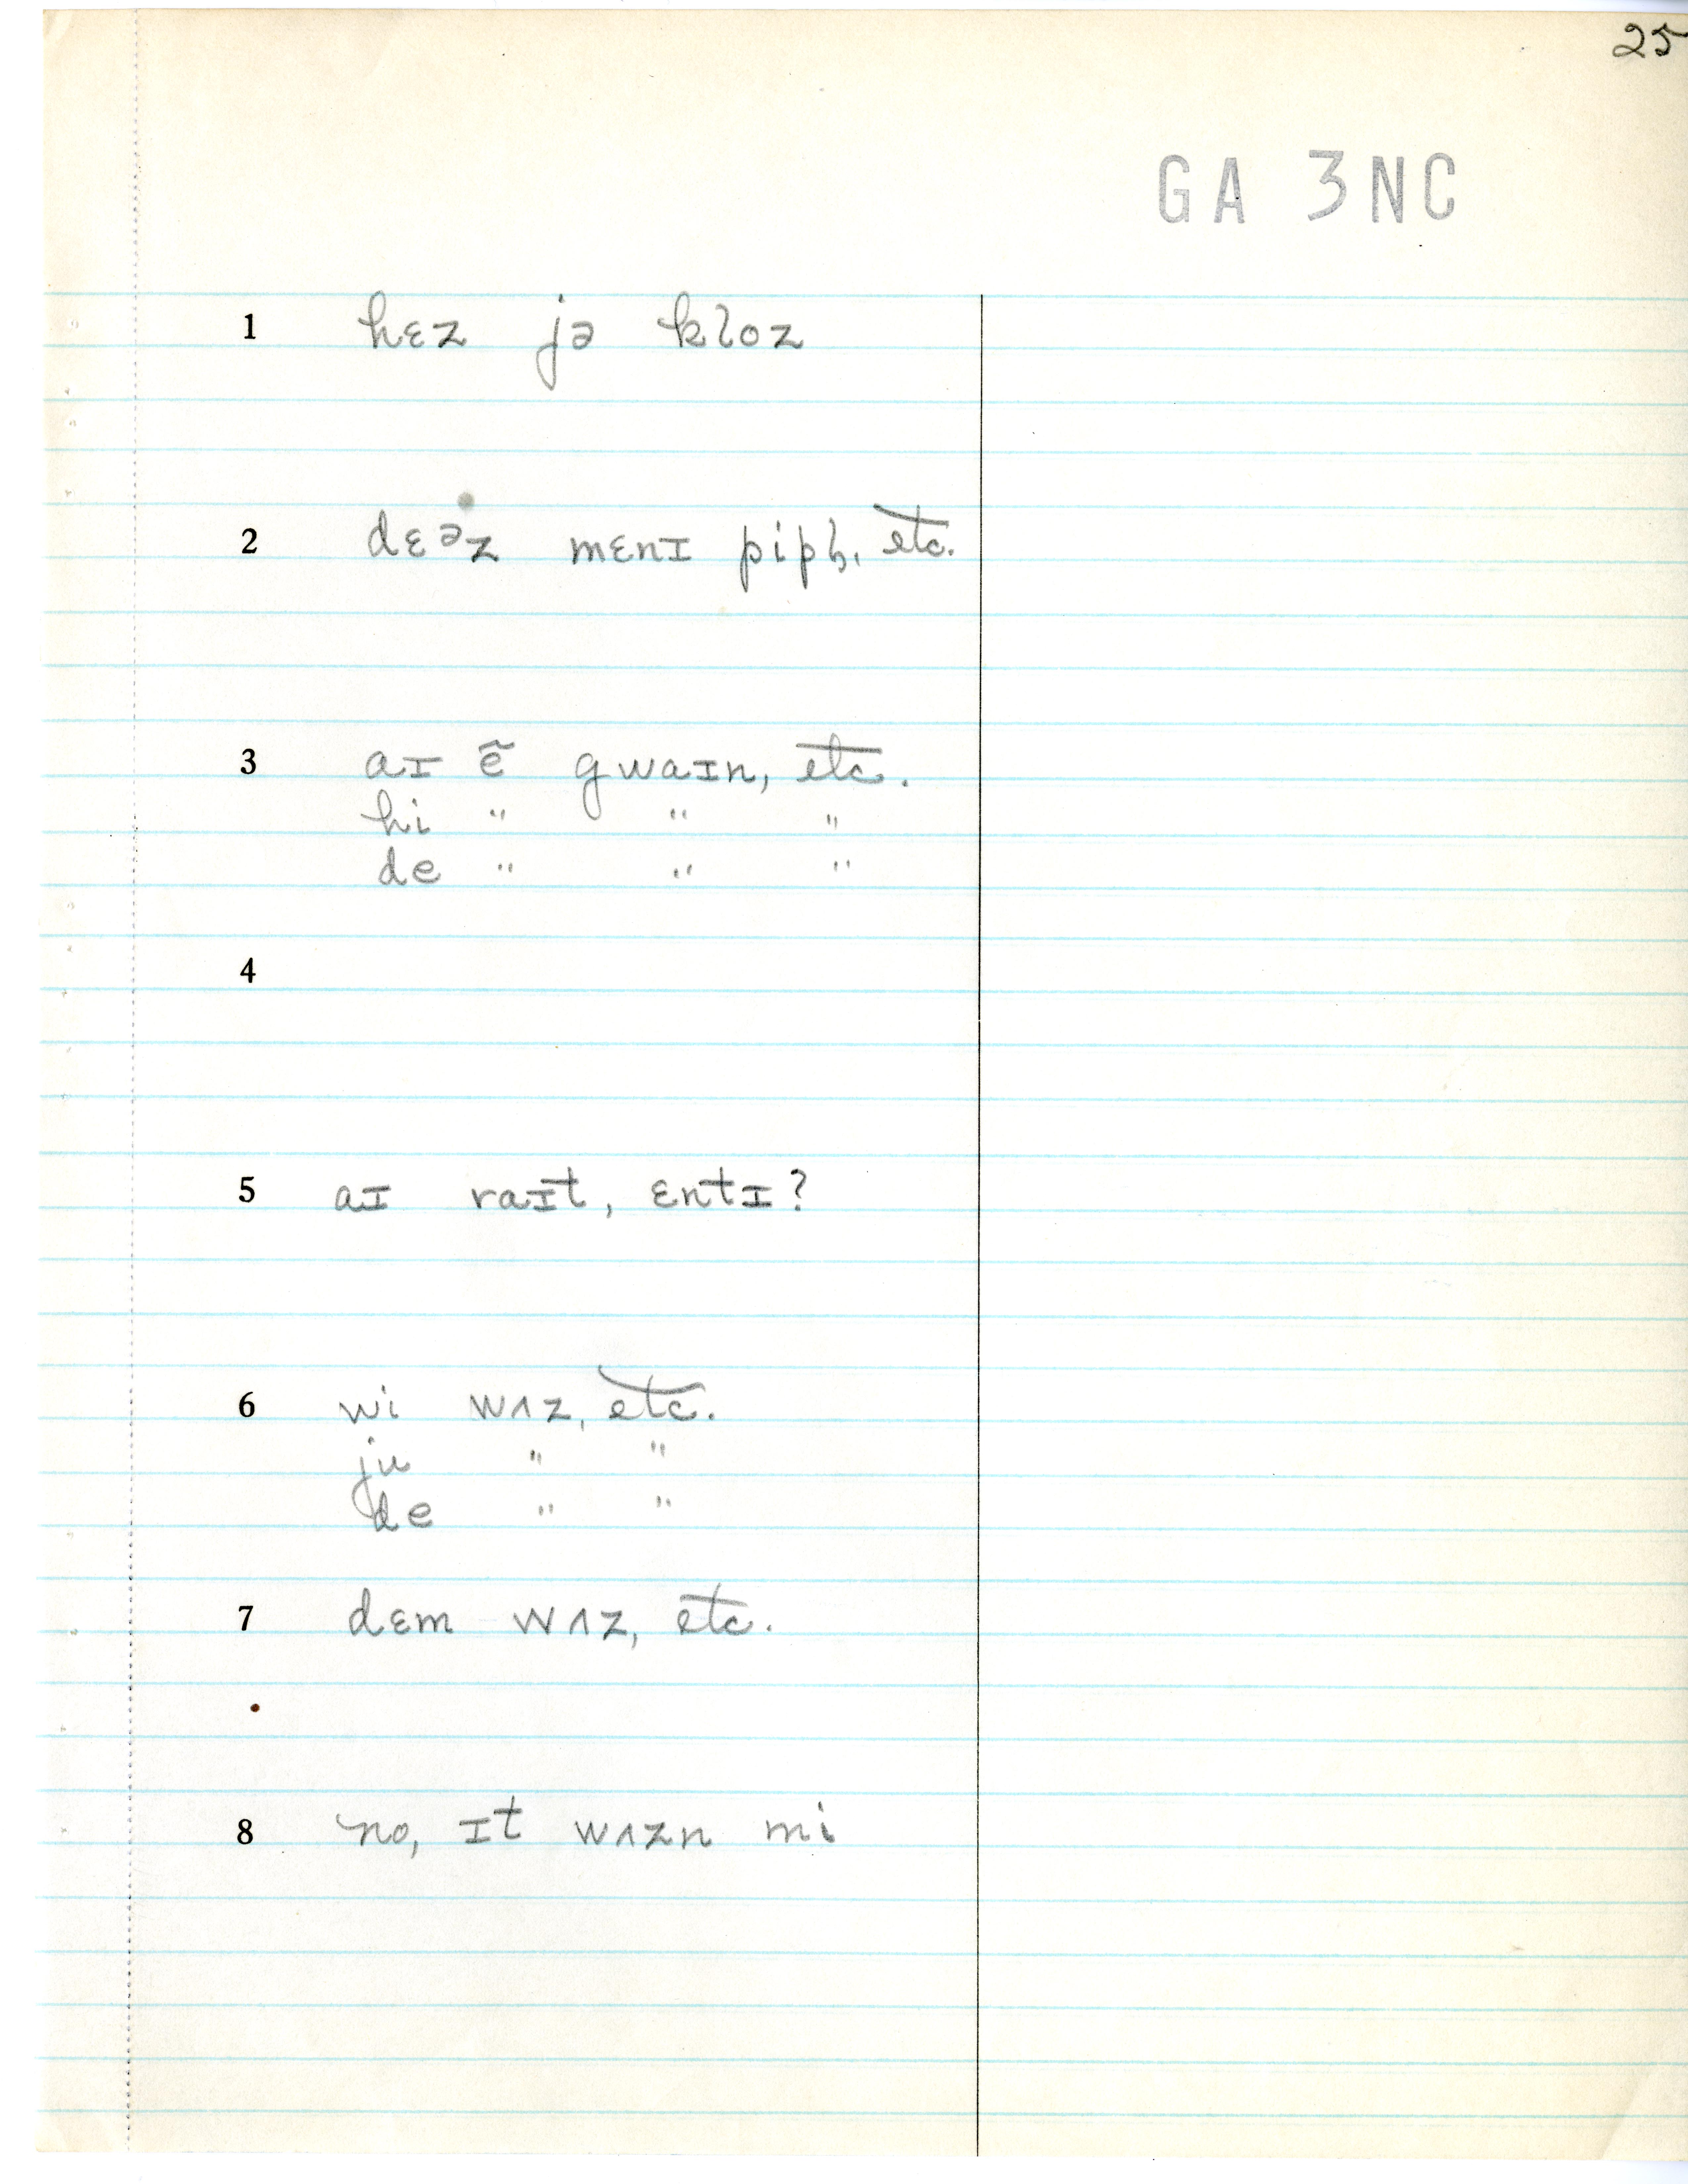 25
GA 3NC
1 hɛz jə kloz
2 dɛəz mɛnɪ pipḷ, etc.
3 aɪ ẽ gwaɪn, etc.
hi " " "
de " " "
4
5 aɪ raɪt, ɛntɪ?
6 wi wʌz, etc.
ju " "
de " "
7 dɛm wʌz, etc.
8 no, ɪt wʌzn mi